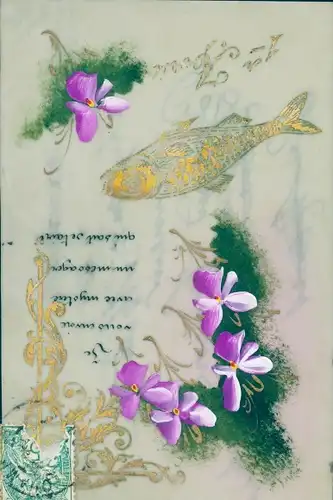 1er Avril
Je
vous envoie
avec mystère
un messager
qui sait se taire